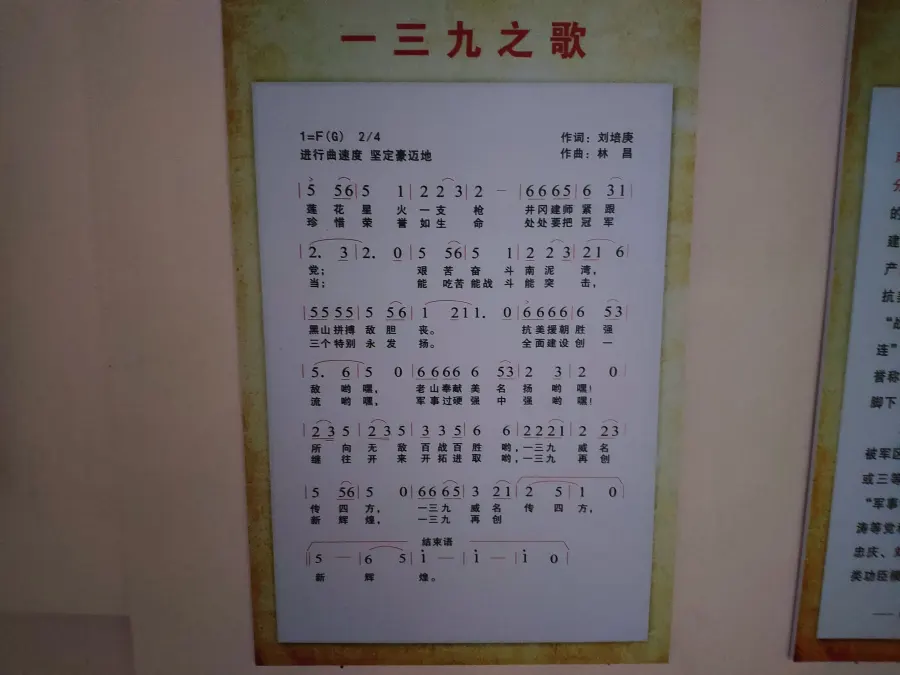 一三九之歌
1=F(G) 2/4 作词：刘培庚
进行曲速度 坚定豪迈地 作曲：林 昌
| 5 56 | 5 1 | 2 2 3 | 2 — | 6 6 6 5 | 6 31 |
莲 花 星 火 一 支 枪 井冈建师紧跟
珍 惜 荣 誉 如 生 命 处处要把冠军
| 2. 3 | 2. 0 | 5 56 | 5 1 | 2 2 3 | 21 6
党； 艰苦奋斗南泥湾，
当； 能吃苦能战斗能突击，
| 5555 | 5 56 | 1 21 | 1. 0 | 6 6666 | 6 53 |
黑山拼搏敌胆丧。 抗美援朝胜强
三个特别永发扬。 全面建设创一
| 5. 6 | 5 0 | 6 666 | 6 53 | 2 3 | 2 0 |
敌 哟嘿， 老山奉献美名扬哟嘿！
流 哟嘿， 军事过硬强中强哟嘿！
| 23 5 | 23 5 | 3 35 | 6 6 | 2221 | 2 23 |
所向无敌百战百胜哟，一三九威名
继往开来开拓进取哟，一三九再创
| 5 56 | 5 0 | 6665 | 3 21 | 2 5 | 1 0 |
传四方， 一三九威名传四方，
新辉煌， 一三九再创
结束语
| 5 — | 6 5 | i — | i — | i 0 |
新 辉 煌。
的
建
产
抗美
连”
誉称
脚下
被军区
或三等
“军事
涛等党
忠庆、
类功臣模